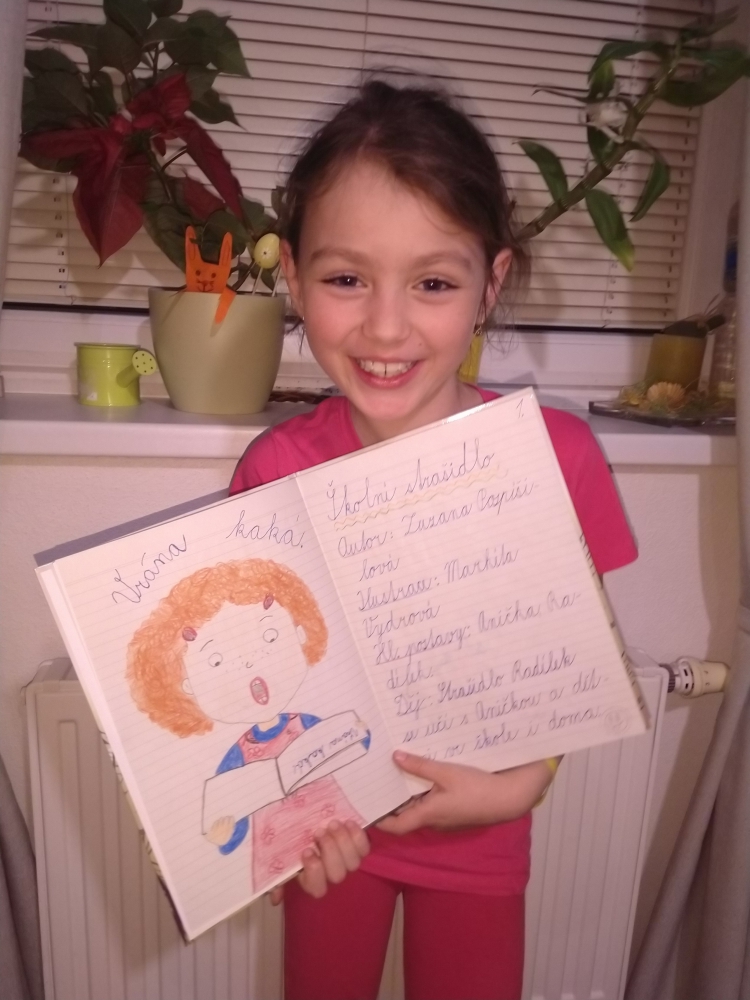 Vrána kaká.
Vrána kaká.
1.
Školní strašidlo
Autor: Zuzana Pospíši-
lová
Ilustrace: Markéta
Vydrová
Hl. postavy: Anička Ra-
dílek
Děj: Strašidlo Radílek
se učí s Aničkou a dět-
mi ve škole i doma.